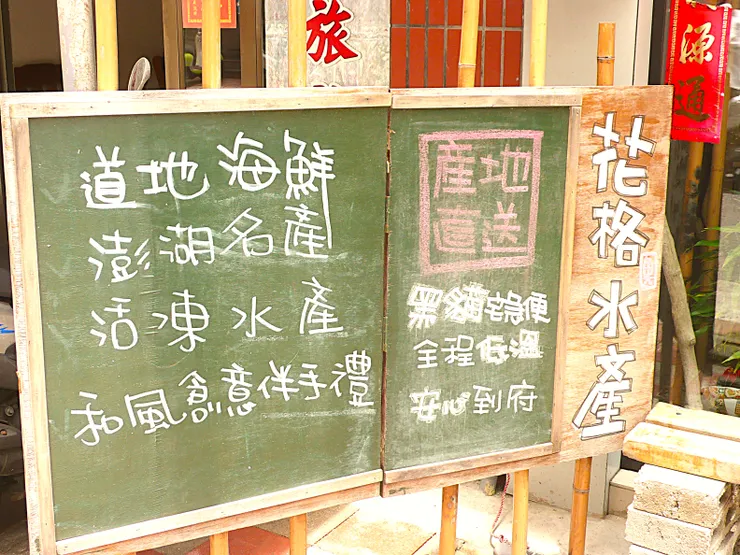 道地海鮮
澎湖名產
活凍水產
和風創意伴手禮
產地
直送
黑貓宅急便
全程低溫
安心到府
花格水產
旅
源通